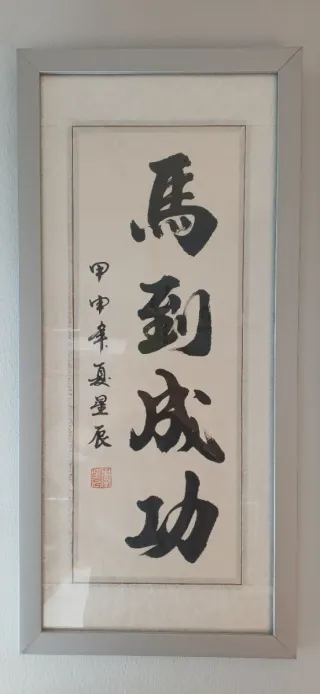 馬到成功
甲申年夏星辰